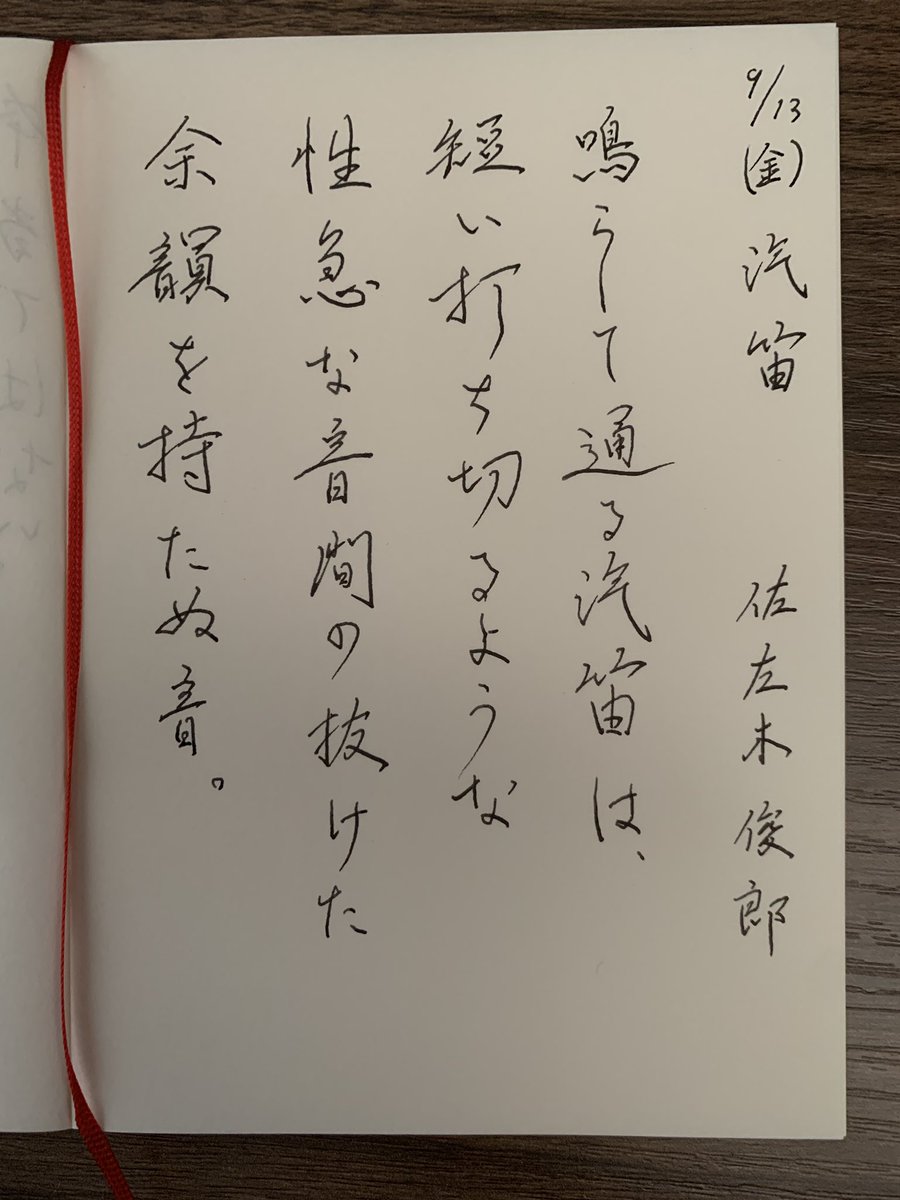 9/13(金) 汽笛 佐左木俊郎
鳴らして通る汽笛は、
短い打ち切るような
性急な音間の抜けた
余韻を持たぬ音。